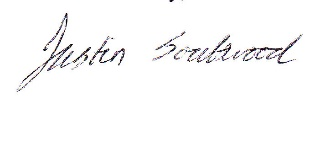 Justin Southwood